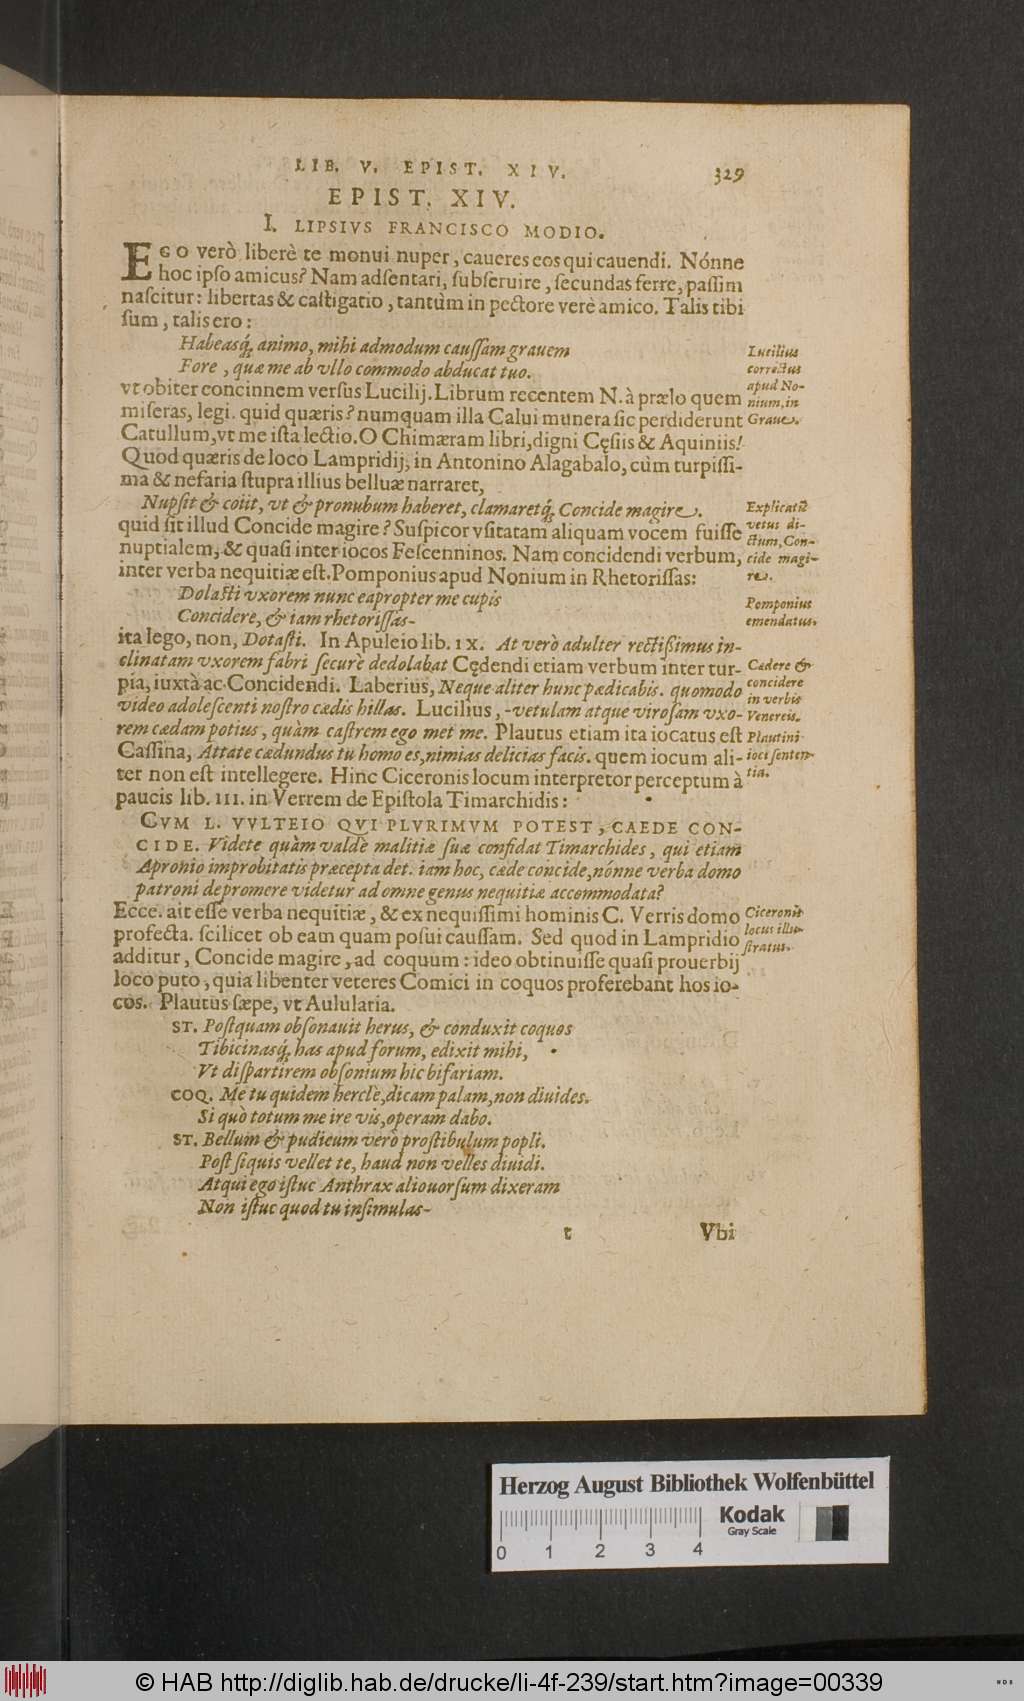 LIB. V. EPIST. XIV. 329
EPIST. XIV.
I. LIPSIVS FRANCISCO MODIO.
EGO verò liberè te monui nuper, caueres eos qui cauendi. Nónne
hoc ipso amicus? Nam adsentari, subseruire, secundas ferre, passim
nascitur: libertas & castigatio, tantùm in pectore verè amico. Talis tibi
sum, talis ero:
Habeasq́; animo, mihi admodum caussam grauem
Fore, quæ me ab vllo commodo abducat tuo.
Lucilius
correctus
apud No-
nium, in
Graue.
vt obiter concinnem versus Lucilij. Librum recentem N. à prælo quem
miseras, legi. quid quæris? numquam illa Calui munera sic perdiderunt
Catullum, vt me ista lectio. O Chimæram libri, digni Cęsiis & Aquiniis!
Quod quæris de loco Lampridij, in Antonino Alagabalo, cùm turpissi-
ma & nefaria stupra illius belluæ narraret,
Nupsit & coiit, vt & pronubum haberet, clamaretq́; Concide magire.
Explicatū
vetus di-
ctum, Con-
cide magi-
re.
quid sit illud Concide magire? Suspicor vsitatam aliquam vocem fuisse
nuptialem, & quasi inter iocos Fescenninos. Nam concidendi verbum,
inter verba nequitiæ est. Pomponius apud Nonium in Rhetorissas:
Dolasti vxorem nunc eapropter me cupis
Concidere, & iam rhetorissas-
Pomponius
emendatus.
ita lego, non, Dotasti. In Apuleio lib. IX. At verò adulter rectißimus in-
clinatam vxorem fabri securè dedolabat Cędendi etiam verbum inter tur-
pia, iuxtà ac Concidendi. Laberius, Neque aliter hunc pædicabis. quomodo
video adolescenti nostro cædis hillas. Lucilius, -vetulam atque virosam vxo-
rem cædam potius, quàm castrem ego met me. Plautus etiam ita iocatus est
Cassina, Attate cædundus tu homo es, nimias delicias facis. quem iocum ali-
ter non est intellegere. Hinc Ciceronis locum interpretor perceptum à
paucis lib. III. in Verrem de Epistola Timarchidis:
Cædere &
concidere
in verbis
Venereis.
Plautini
ioci senten-
tia.
CVM L. VVLTEIO QVI PLVRIMVM POTEST, CAEDE CON-
CIDE. Videte quàm valdè malitiæ suæ confidat Timarchides, qui etiam
Apronio improbitatis præcepta det. iam hoc, cæde concide, nónne verba domo
patroni depromere videtur ad omne genus nequitiæ accommodata?
Ecce. ait esse verba nequitiæ, & ex nequissimi hominis C. Verris domo
profecta. scilicet ob eam quam posui caussam. Sed quod in Lampridio
additur, Concide magire, ad coquum: ideo obtinuisse quasi prouerbij
loco puto, quia libenter veteres Comici in coquos proferebant hos io-
cos. Plautus sæpe, vt Aulularia.
Ciceronis
locus illu-
stratus.
ST. Postquam obsonauit herus, & conduxit coquos
Tibicinasq́; has apud forum, edixit mihi,
Vt dispartirem obsonium hic bifariam.
COQ. Me tu quidem herclè, dicam palam, non diuides.
Si quò totum me ire vis, operam dabo.
ST. Bellum & pudicum verò prostibulum popli.
Post siquis vellet te, haud non velles diuidi.
Atqui ego istuc Anthrax aliouorsum dixeram
Non istuc quod tu insimulas-
t Vbi
Herzog August Bibliothek Wolfenbüttel
Kodak
Gray Scale
0 1 2 3 4
© HAB http://diglib.hab.de/drucke/li-4f-239/start.htm?image=00339